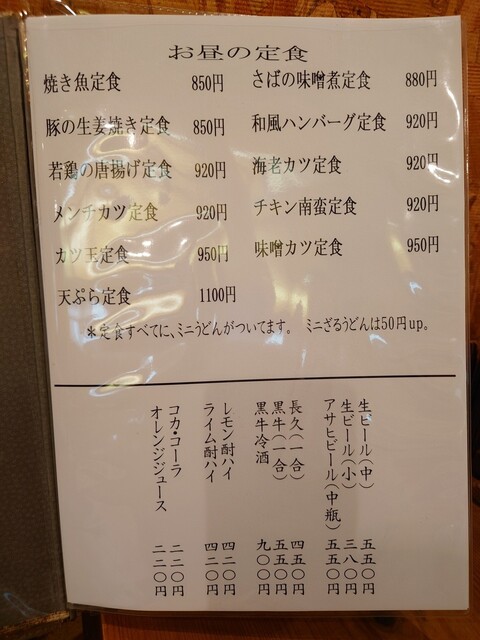 お昼の定食
焼き魚定食 850円 さばの味噌煮定食 880円
豚の生姜焼き定食 850円 和風ハンバーグ定食 920円
若鶏の唐揚げ定食 920円 海老カツ定食 920円
メンチカツ定食 920円 チキン南蛮定食 920円
カツ玉定食 950円 味噌カツ定食 950円
天ぷら定食 1100円
＊定食すべてに、ミニうどんがついてます。 ミニざるうどんは50円up。
生ビール(中) 五五〇円
生ビール(小) 三八〇円
アサヒビール(中瓶) 五五〇円
長久(一合) 四五〇円
黒牛(一合) 五五〇円
黒牛冷酒 九〇〇円
レモン酎ハイ 四二〇円
ライム酎ハイ 四二〇円
コカ・コーラ 二二〇円
オレンジジュース 二二〇円